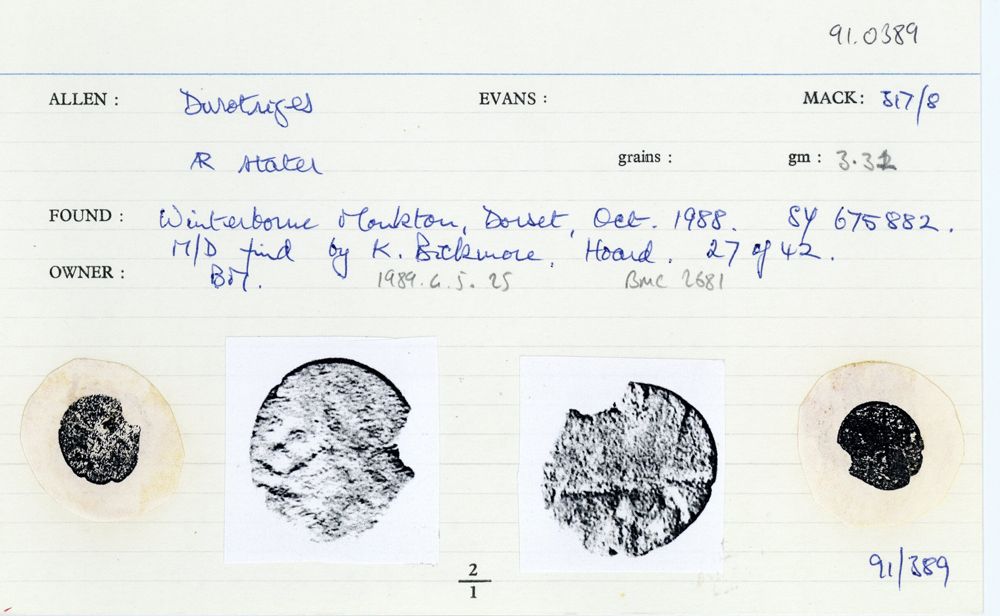 91.0389
ALLEN : Durotriges EVANS : MACK: 317/8
AR stater grains : gm : 3.32
FOUND : Winterborne Monkton, Dorset, Oct. 1988. SY 675882.
M/D find by K. Bickmore. Hoard. 27 of 42.
OWNER : BM. 1989.6.5.25 BMC 2681
2
1
91/389